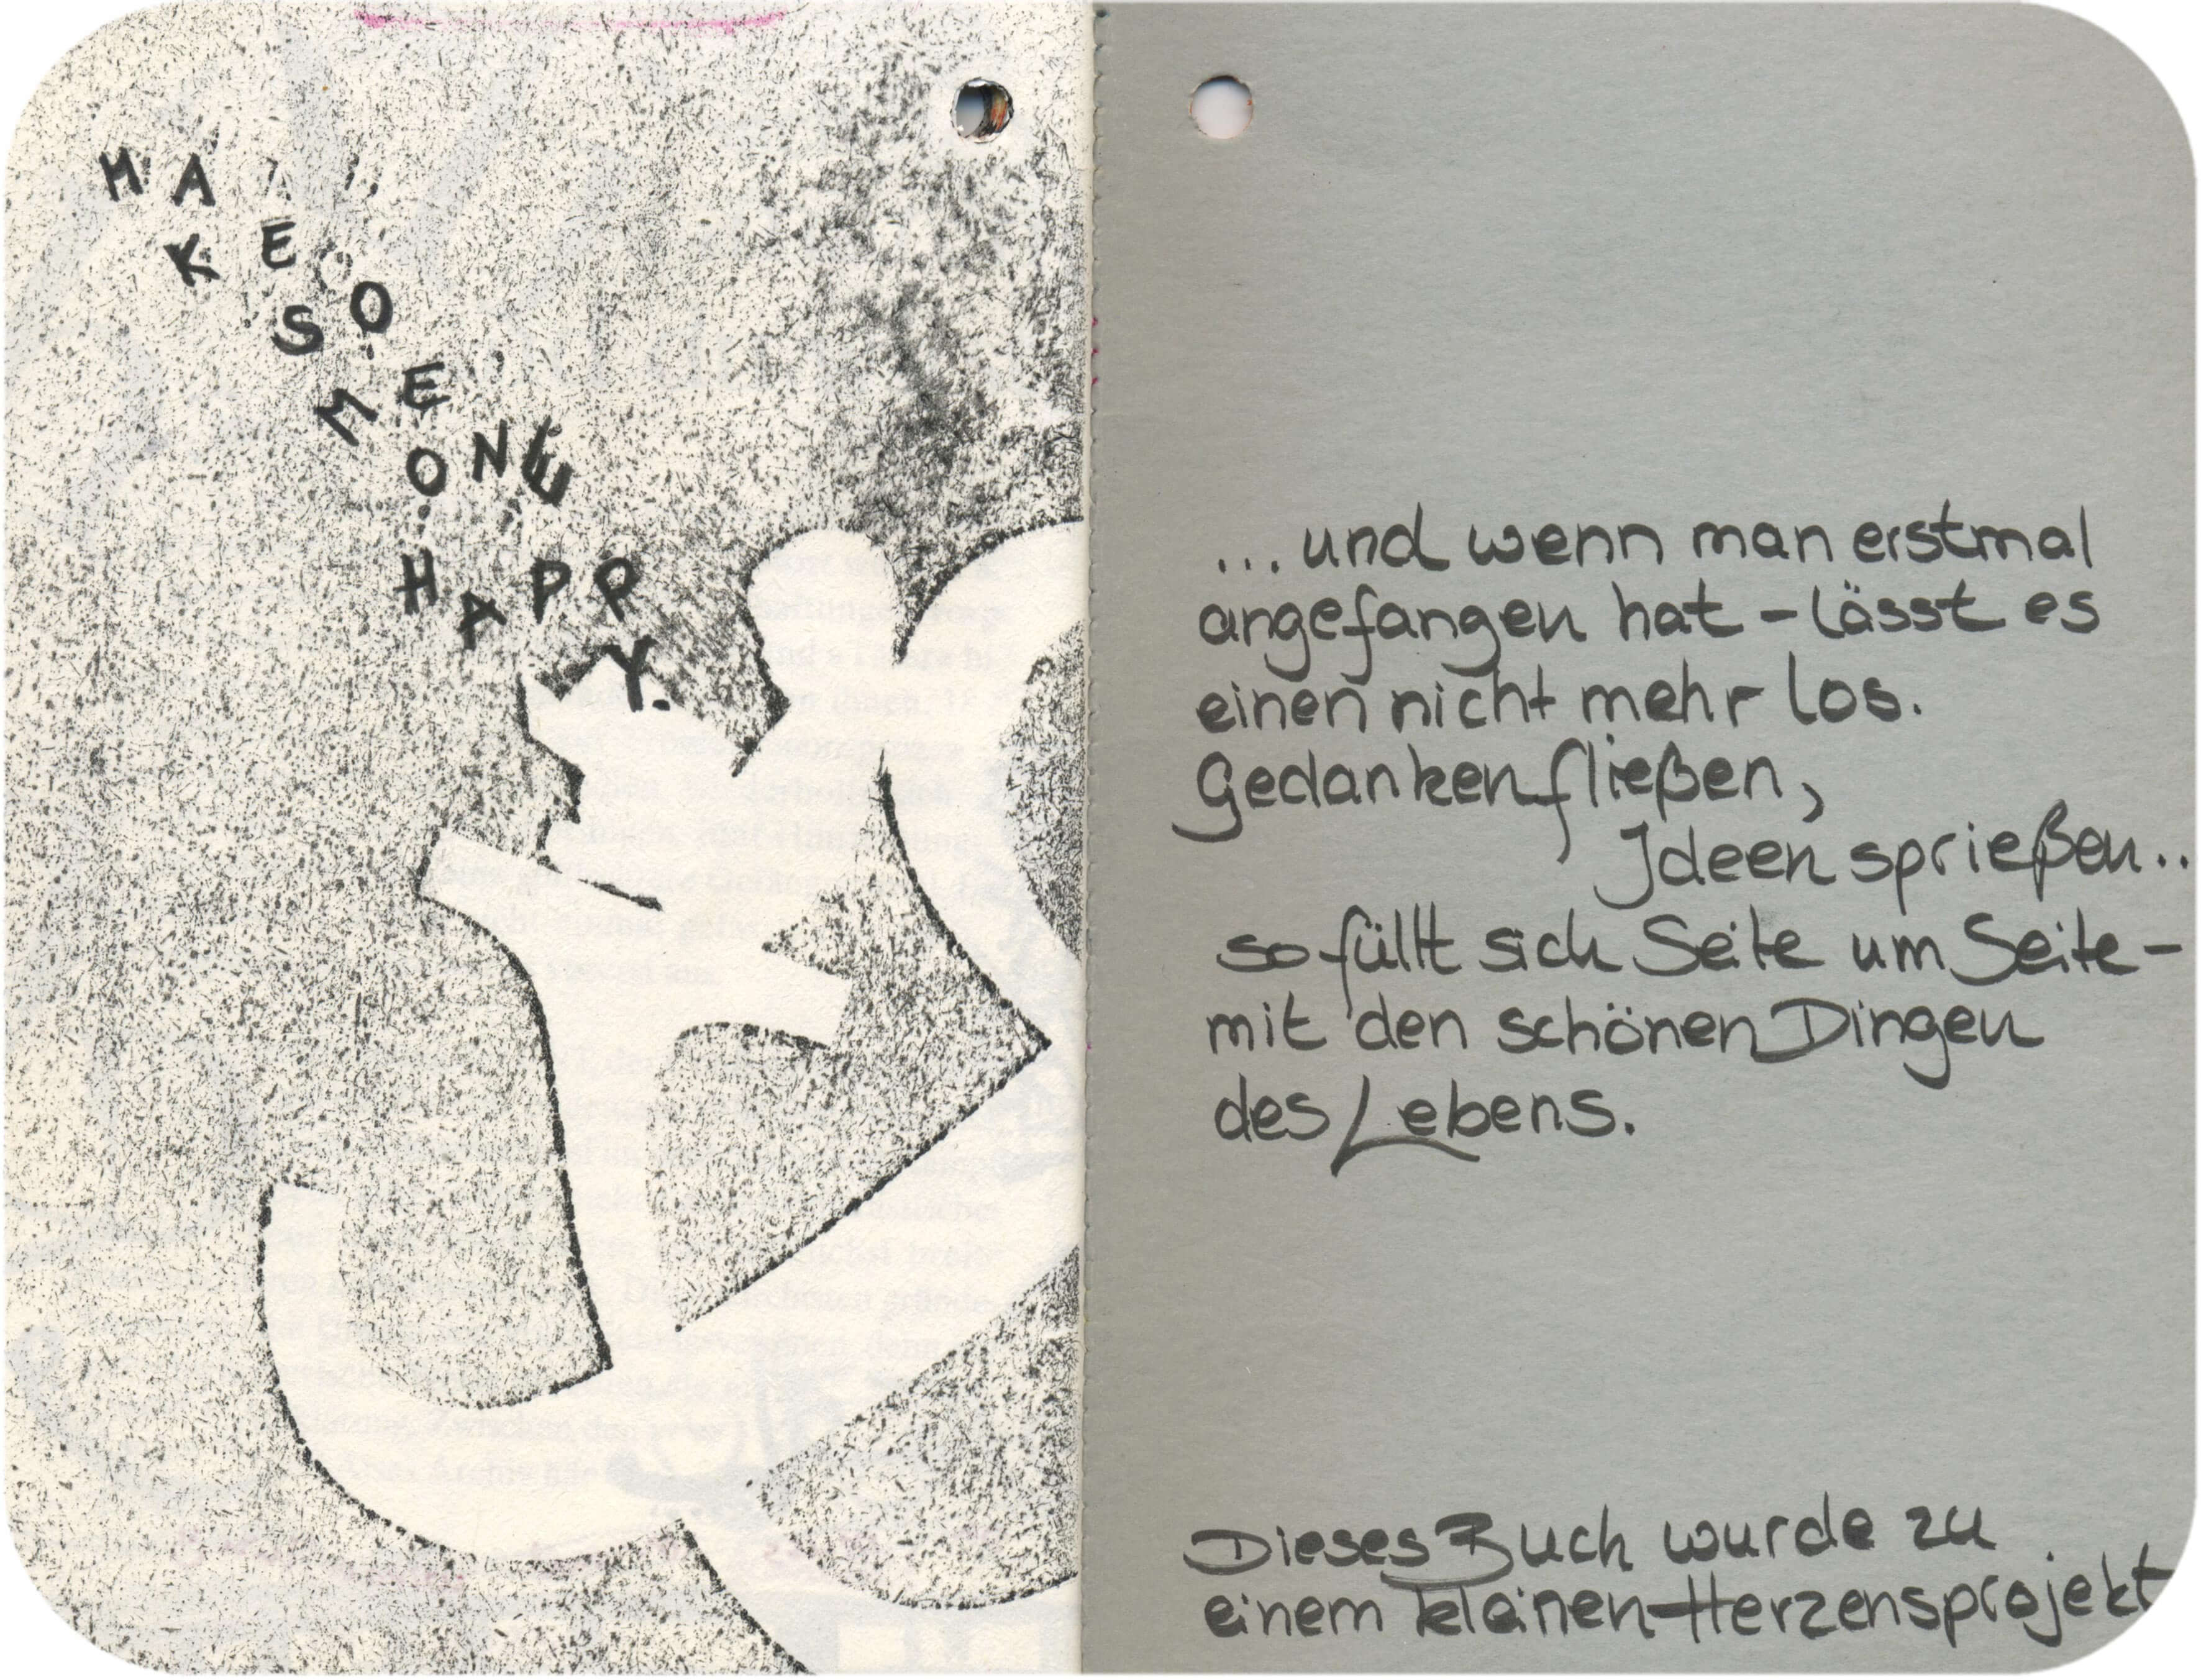 MA
KE
SO
ME
ONE
HAPP
Y.
...und wenn man erstmal
angefangen hat - lässt es
einen nicht mehr los.
Gedanken fließen,
Ideen sprießen..
so füllt sich Seite um Seite -
mit den schönen Dingen
des Lebens.
Dieses Buch wurde zu
einem kleinen Herzensprojekt